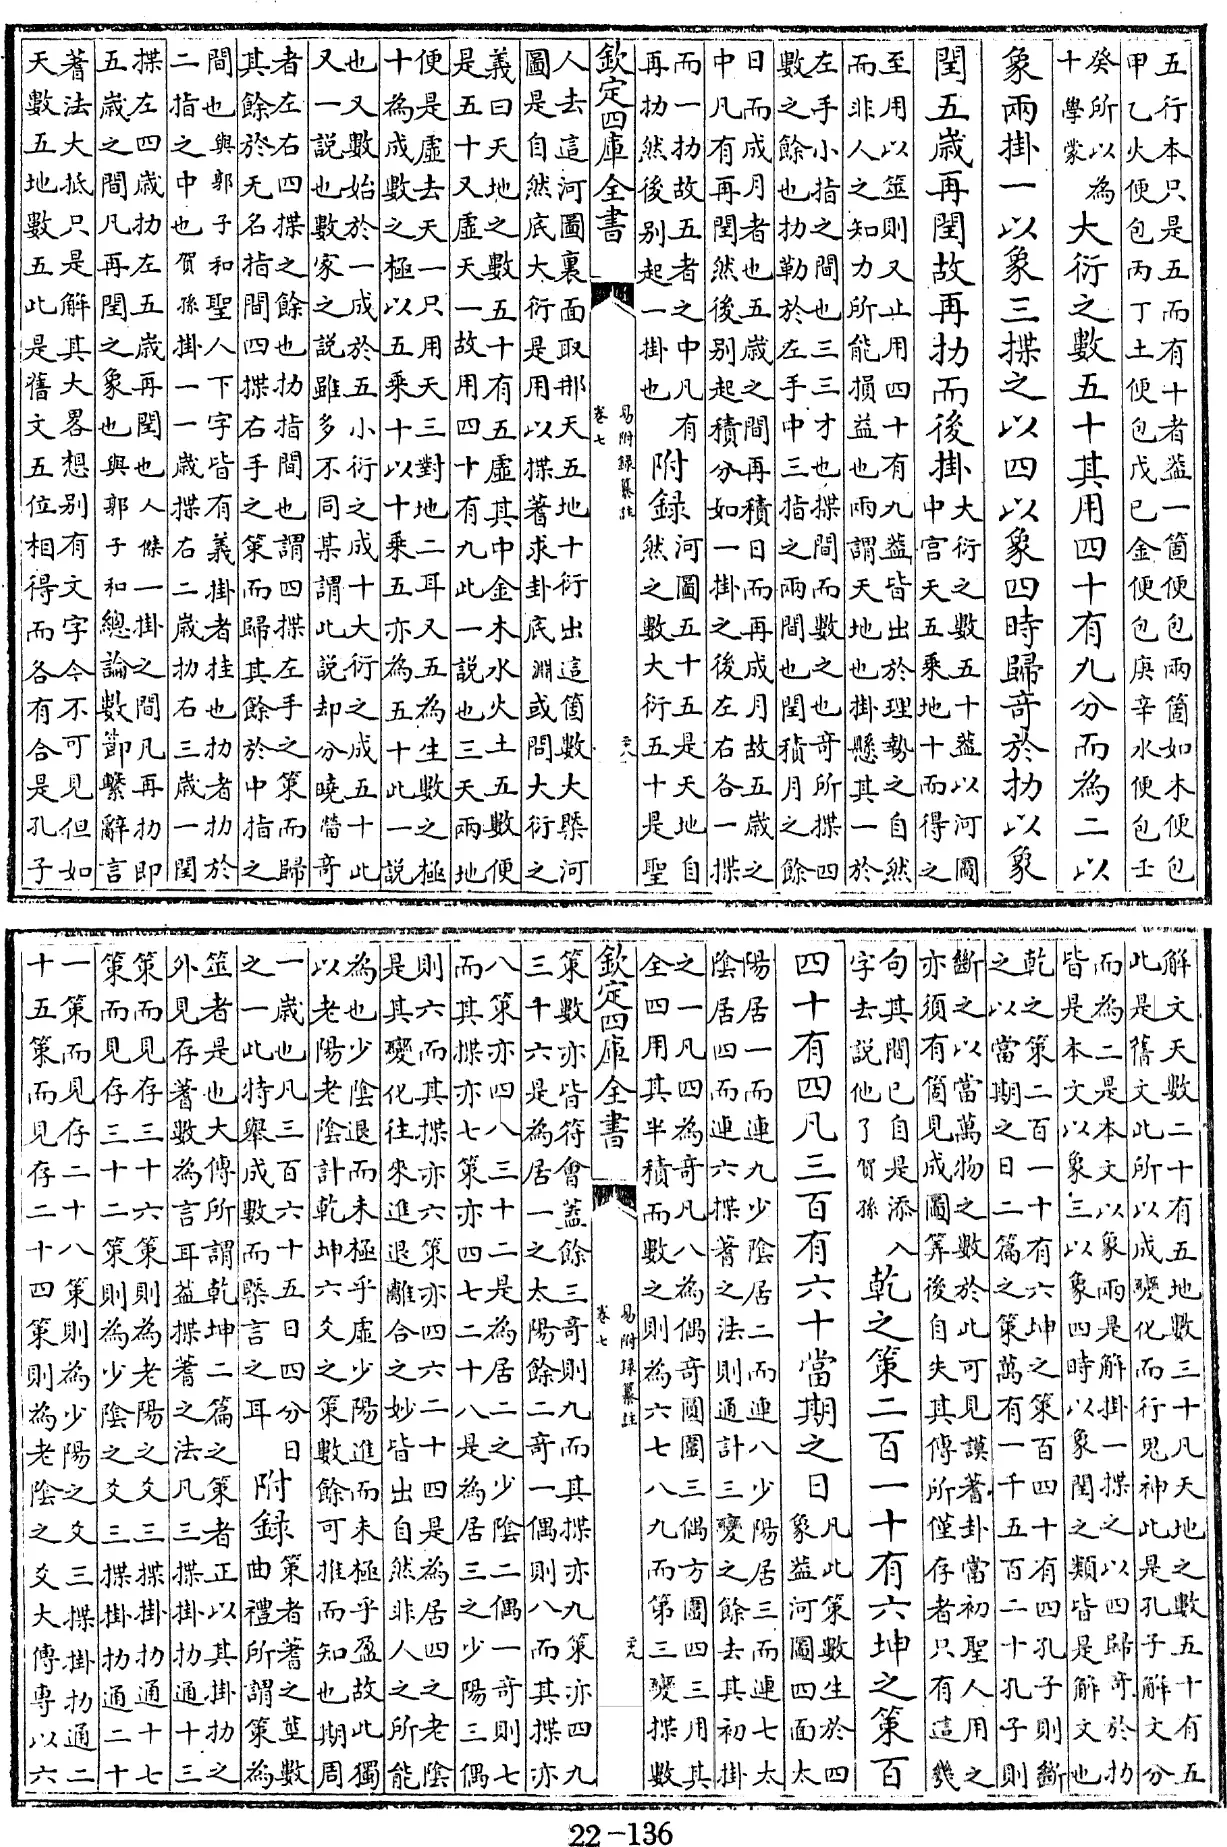 五行本只是五而有十者葢一箇便包兩箇如木便包
甲乙火便包丙丁土便包戊已金便包庚辛水便包壬
癸所以為
十學蒙
大衍之數五十其用四十有九分而為二以
象兩掛一以象三揲之以四以象四時歸奇於扐以象
閏五歲再閏故再扐而後掛
大衍之數五十葢以河圖
中宫天五乘地十而得之
至用以筮則又止用四十有九葢皆出於理勢之自然
而非人之知力所能損益也兩謂天地也掛懸其一於
左手小指之間也三三才也揲間而數之也奇所揲四
數之餘也扐勒於左手中三指之兩間也閏積月之餘
日而成月者也五歲之間再積日而再成月故五歲之
中凡有再閏然後别起積分如一掛之後左右各一揲
而一扐故五者之中凡有
再扐然後别起一掛也
附録
河圖五十五是天地自
然之數大衍五十是聖
欽定四庫全書
易附録纂註
卷七
二八
人去這河圖裏面取那天五地十衍出這箇數大槩河
圖是自然底大衍是用以揲蓍求卦底淵或問大衍之
義曰天地之數五十有五虛其中金木水火土五數便
是五十又虛天一故用四十有九此一説也三天兩地
便是虛去天一只用天三對地二耳又五為生數之極
十為成數之極以五乘十以十乘五亦為五十此一説
也又數始於一成於五小衍之成十大衍之成五十此
又一説也數家之説雖多不同某謂此説却分曉奇
者左右四揲之餘也扐指間也謂四揲左手之策而歸
其餘於无名指間四揲右手之策而歸其餘於中指之
間也與郭子和聖人下字皆有義掛者挂也扐者扐於
二指之中也賀孫掛一一歲揲右二歲扐右三歲一閏
揲左四歲扐左五歲再閏也人傑一掛之間凡再扐即
五歲之間凡再閏之象也與郭子和總論數節繫辭言
蓍法大抵只是解其大畧想别有文字今不可見但如
天數五地數五此是舊文五位相得而各有合是孔子
解文天數二十有五地數三十凡天地之數五十有五
此是舊文此所以成變化而行鬼神此是孔子解文分
而為二是本文以象兩是解掛一揲之以四歸奇於扐
皆是本文以象三以象四時以象閏之類皆是解文也
乾之策二百一十有六坤之策百四十有四孔子則斷
之以當期之日二篇之策萬有一千五百二十孔子則
斷之以當萬物之數於此可見謨蓍卦當初聖人用之
亦須有箇見成圖筭後自失其傳所僅存者只有這幾
句其間已自是添入
字去説他了賀孫
乾之策二百一十有六坤之策百
四十有四凡三百有六十當期之日
凡此策數生於四
象葢河圖四面太
陽居一而連九少陰居二而連八少陽居三而連七太
陰居四而連六揲蓍之法則通計三變之餘去其初掛
之一凡四為奇凡八為偶奇圓圍三偶方圍四三用其
全四用其半積而數之則為六七八九而第三變揲數
欽定四庫全書
易附録纂註
卷七
二九
策數亦皆符會葢餘三奇則九而其揲亦九策亦四九
三十六是為居一之太陽餘二奇一偶則八而其揲亦
八策亦四八三十二是為居二之少陰二偶一奇則七
而其揲亦七策亦四七二十八是為居三之少陽三偶
則六而其揲亦六策亦四六二十四是為居四之老陰
是其變化往來進退離合之妙皆出自然非人之所能
為也少陰退而未極乎虛少陽進而未極乎盈故此獨
以老陽老陰計乾坤六爻之策數餘可推而知也期周
一歲也凡三百六十五日四分日
之一此特舉成數而槩言之耳
附録
策者蓍之莖數
曲禮所謂策為
筮者是也大傳所謂乾坤二篇之策者正以其掛扐之
外見存蓍數為言耳葢揲蓍之法凡三揲掛扐通十三
策而見存三十六策則為老陽之爻三揲掛扐通十七
策而見存三十二策則為少陰之爻三揲掛扐通二十
一策而見存二十八策則為少陽之爻三揲掛扐通二
十五策而見存二十四策則為老陰之爻大傳専以六
22-136